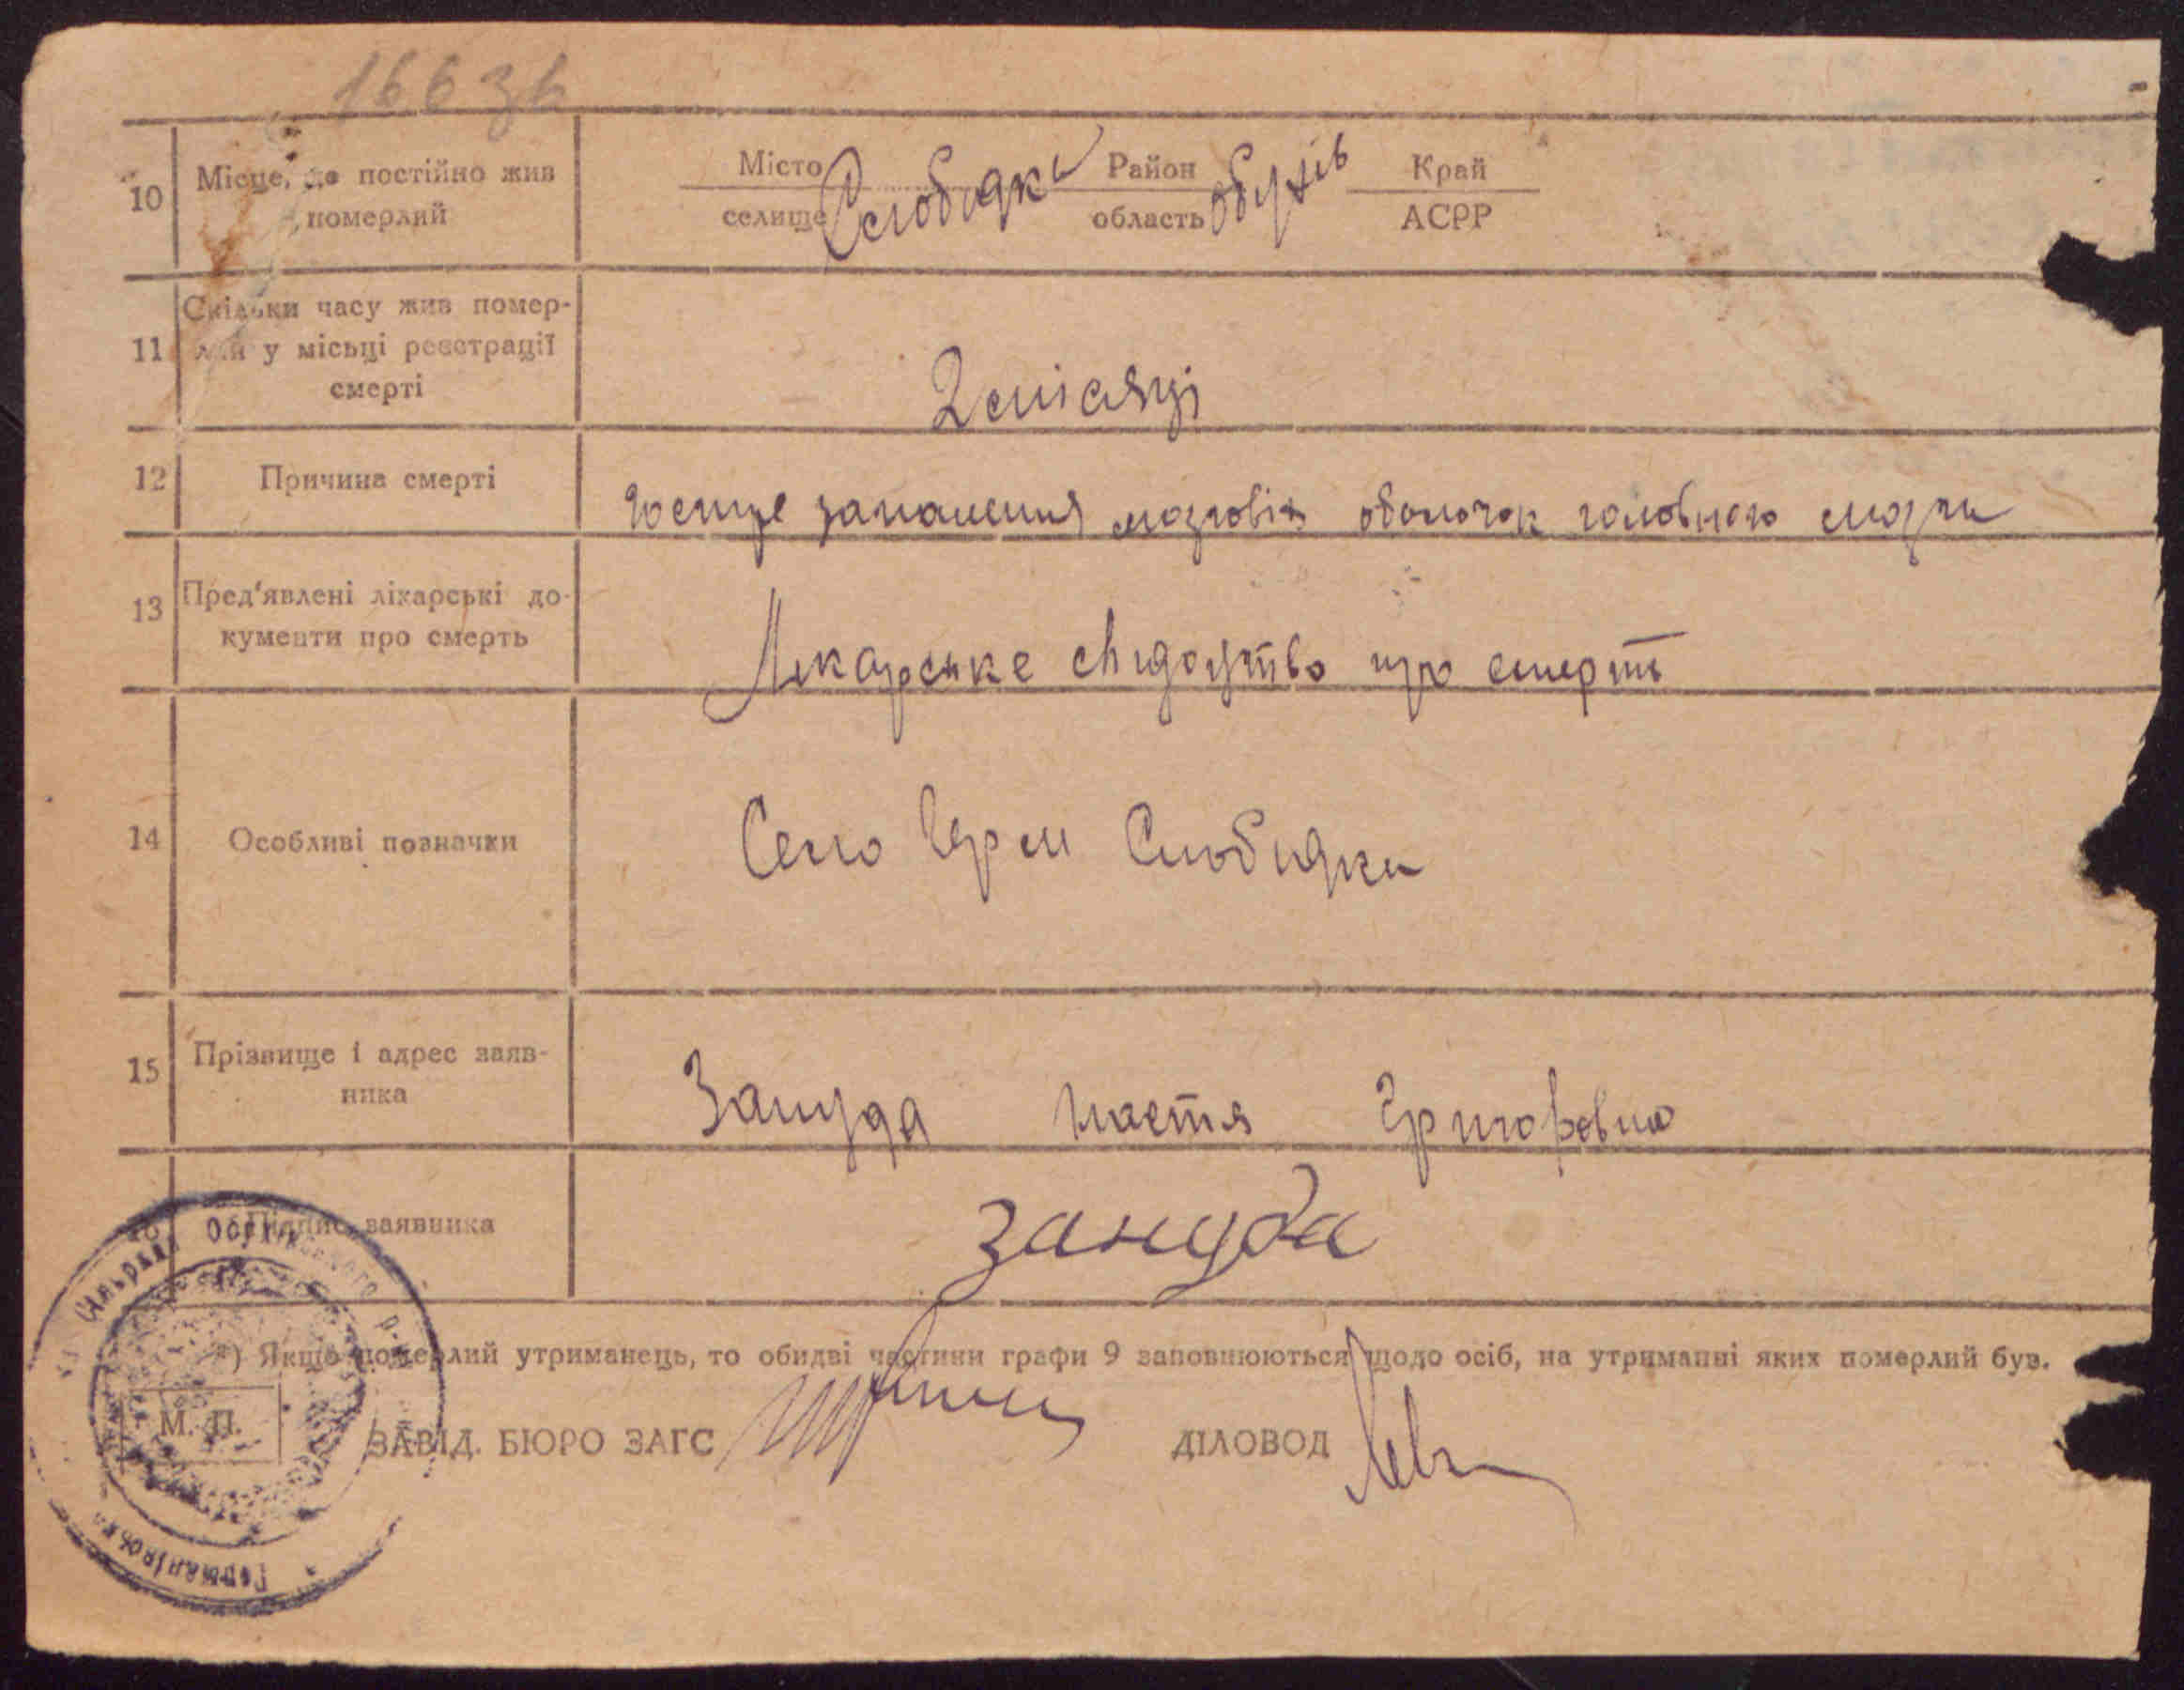 166 зв
10 Місце, де постійно жив померлий
Місто селище Слобидка Район область Обухів Край АСРР
11 Скільки часу жив помер-
лий у місьці реєстрації
смерті
2 місяці
12 Причина смерті
запалення мозговіх оболочок головного мозга
13 Пред'явлені лікарські до-
кументи про смерть
Лікарське свидоцтво про смерть
14 Особливі позначки
Село Герм Слобидка
15 Прізвище і адрес заяв-
ника
Зануда Настя Григоровна
16 Підпис заявника
зануда
*) Якщо померлий утриманець, то обидві частини графи 9 заповнюються щодо осіб, на утриманні яких померлий був.
М. П.
ЗАВІД. БЮРО ЗАГС
ДІЛОВОД